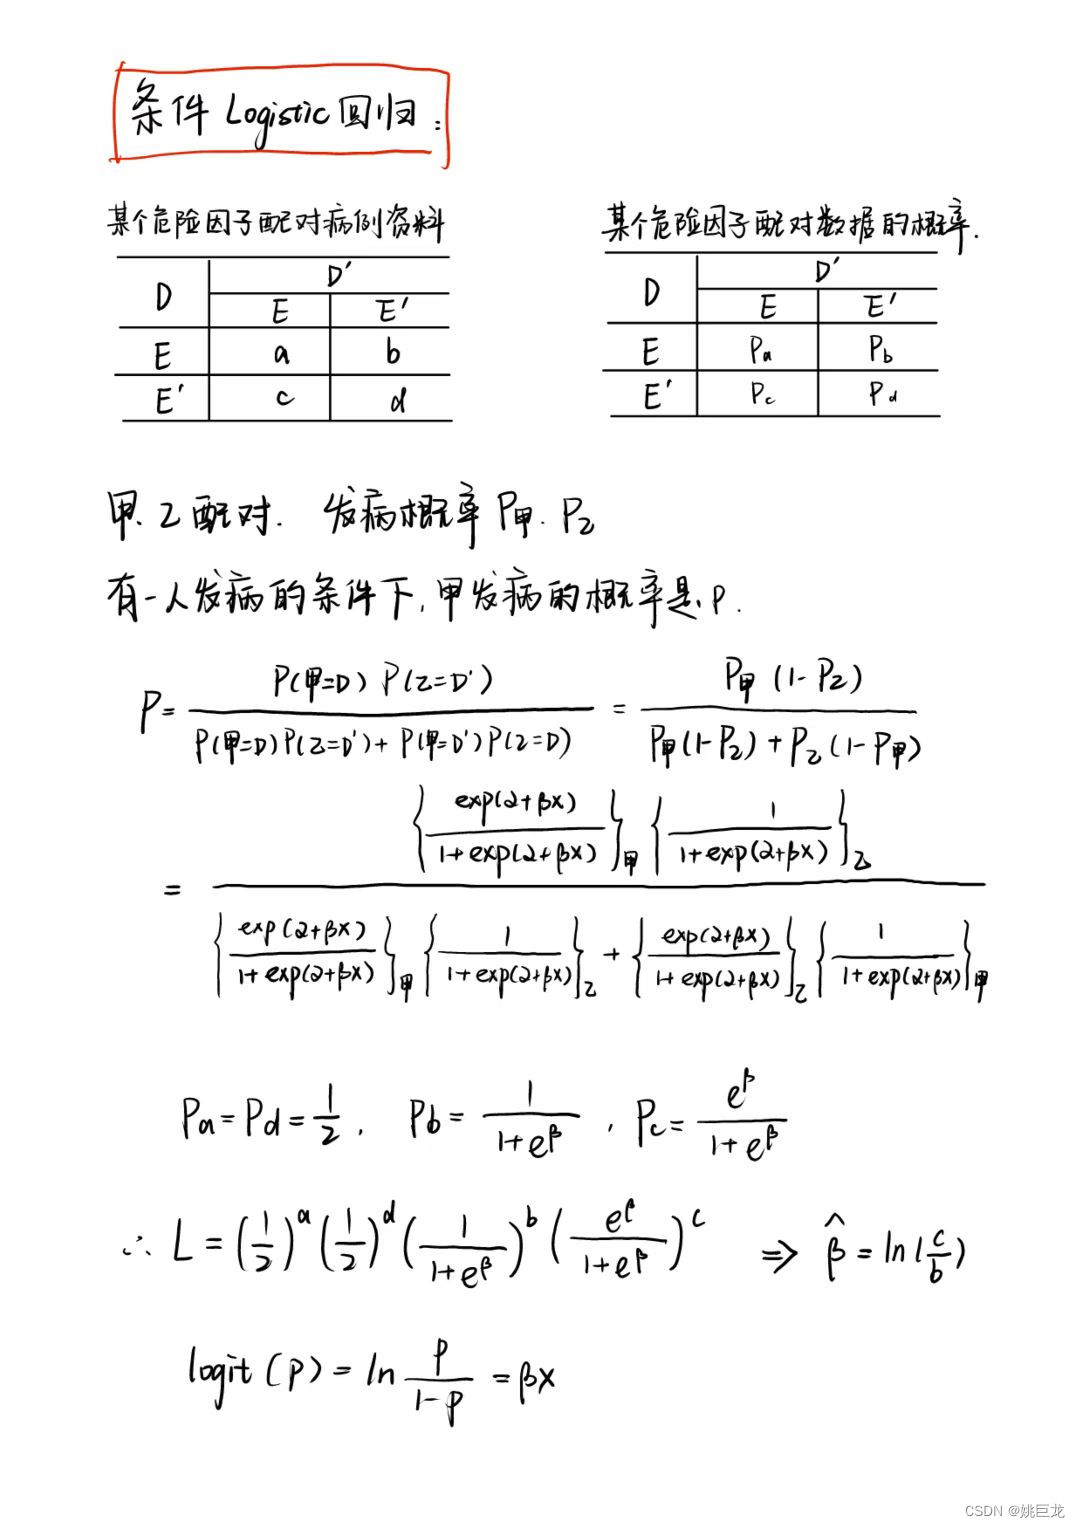 条件 Logistic 回归:
某个危险因子配对病例资料
D D′
E E′
E a b
E′ c d
某个危险因子配对数据的概率.
D D′
E E′
E Pa Pb
E′ Pc Pd
甲.乙配对. 发病概率 P甲. P乙
有一人发病的条件下,甲发病的概率是P.
P = P(甲=D) P(乙=D′) / [P(甲=D)P(乙=D′) + P(甲=D′)P(乙=D)] = P甲 (1-P乙) / [P甲(1-P乙) + P乙(1-P甲)]
= {exp(α+βx) / 1+exp(α+βx)}甲 {1 / 1+exp(α+βx)}乙
/ {exp(α+βx) / 1+exp(α+βx)}甲 {1 / 1+exp(α+βx)}乙 + {exp(α+βx) / 1+exp(α+βx)}乙 {1 / 1+exp(α+βx)}甲
Pa = Pd = 1/2 , Pb = 1 / (1+e^β) , Pc = e^β / (1+e^β)
∴ L = (1/2)^a (1/2)^d (1 / (1+e^β))^b (e^β / (1+e^β))^c ⇒ β̂ = ln(c/b)
logit(p) = ln p / (1-p) = βx
CSDN @姚巨龙